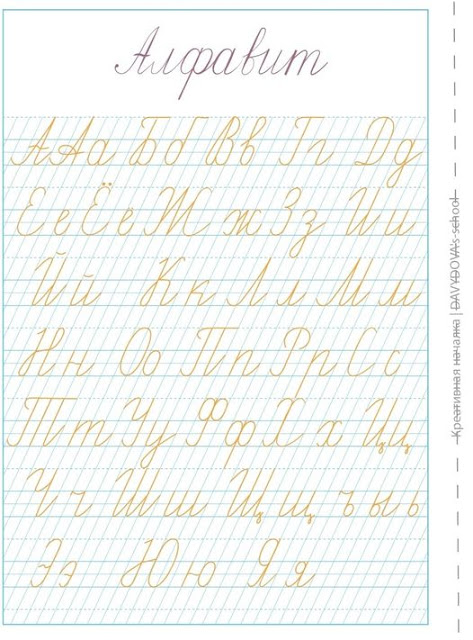 Алфавит
А А а Б б В в Г г Д д
Е е Ё ё Ж ж З з И и
Й й К к Л л М м
Н н О о П п Р р С с
Т т У у Ф ф Х х Ц ц
Ч ч Ш ш Щ щ ъ ы ь
Э э Ю ю Я я
Креативная началка | DAVYDOVA's-school